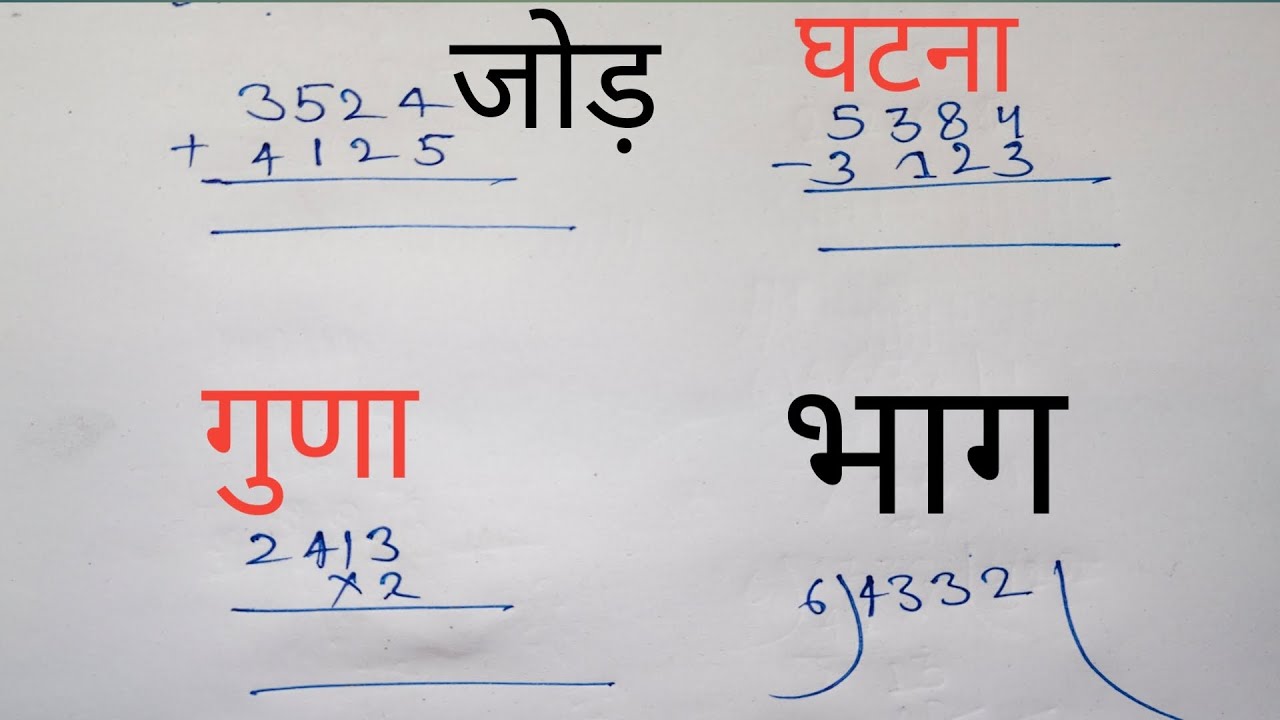 जोड़
3524
+ 4125
घटना
5384
- 3123
गुणा
2413
×2
भाग
6)4332(